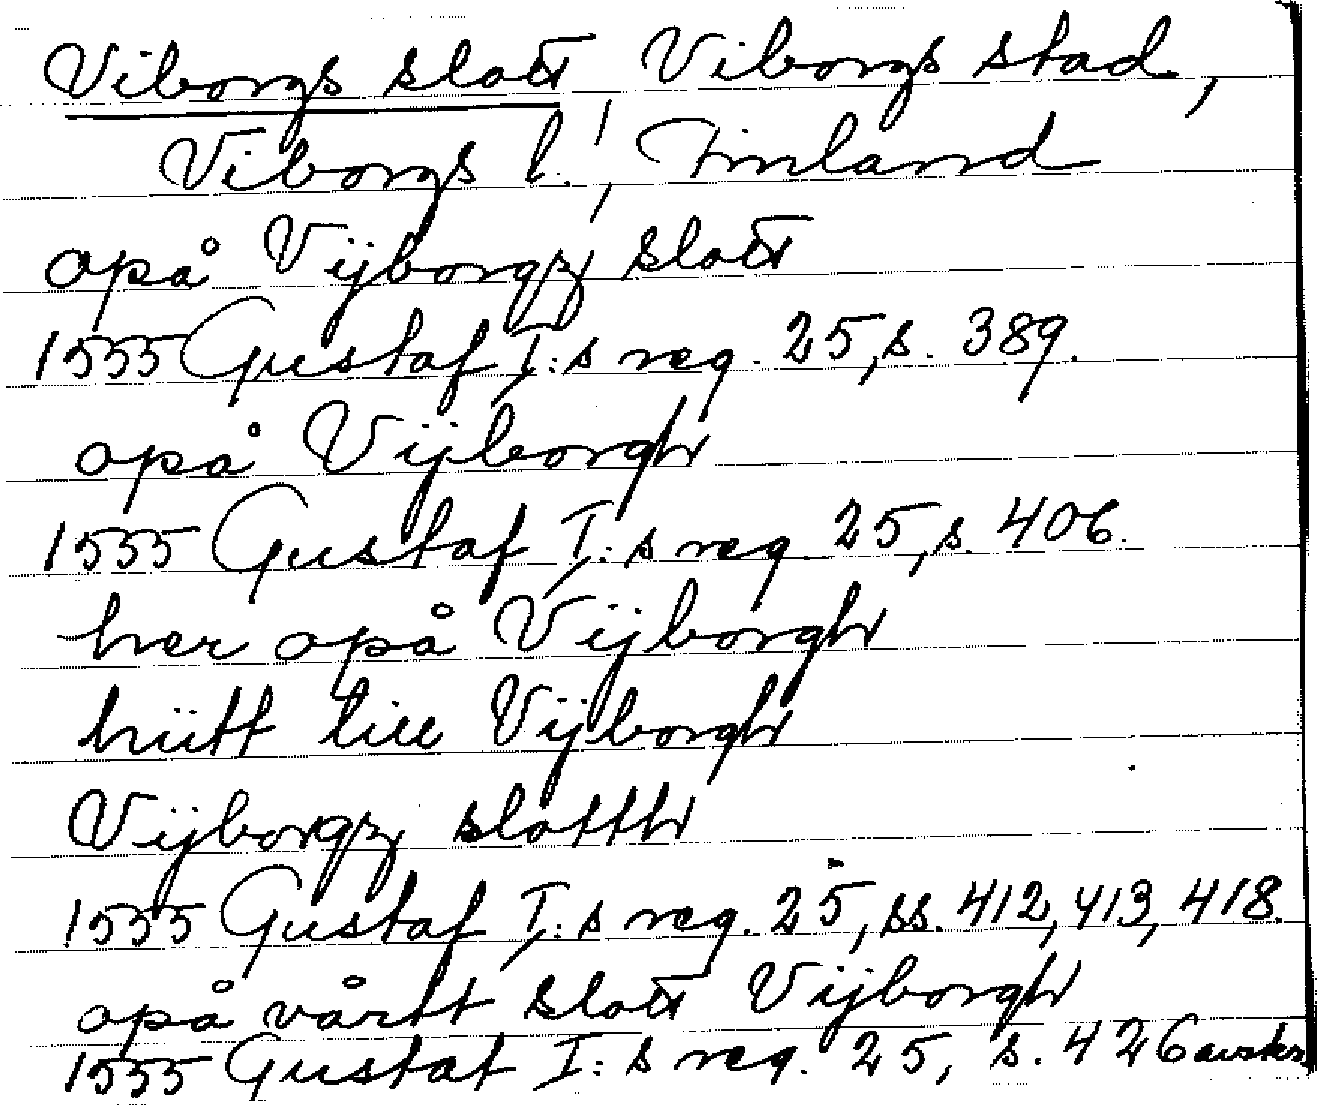 Viborgs slott, Viborgs stad,
Viborgs l., Finland
opå Vijborgz slott
1555 Gustaf I:s reg. 25, s. 389.
opå Vijborgh
1555 Gustaf I:s reg. 25, s. 406.
her opå Vijborgh
hiitt till Vijborgh
Vijborgz slotth
1555 Gustaf I:s reg. 25, ss. 412, 413, 418.
opå vårtt slott Vijborgh
1555 Gustaf I:s reg. 25, s. 426 avskr.